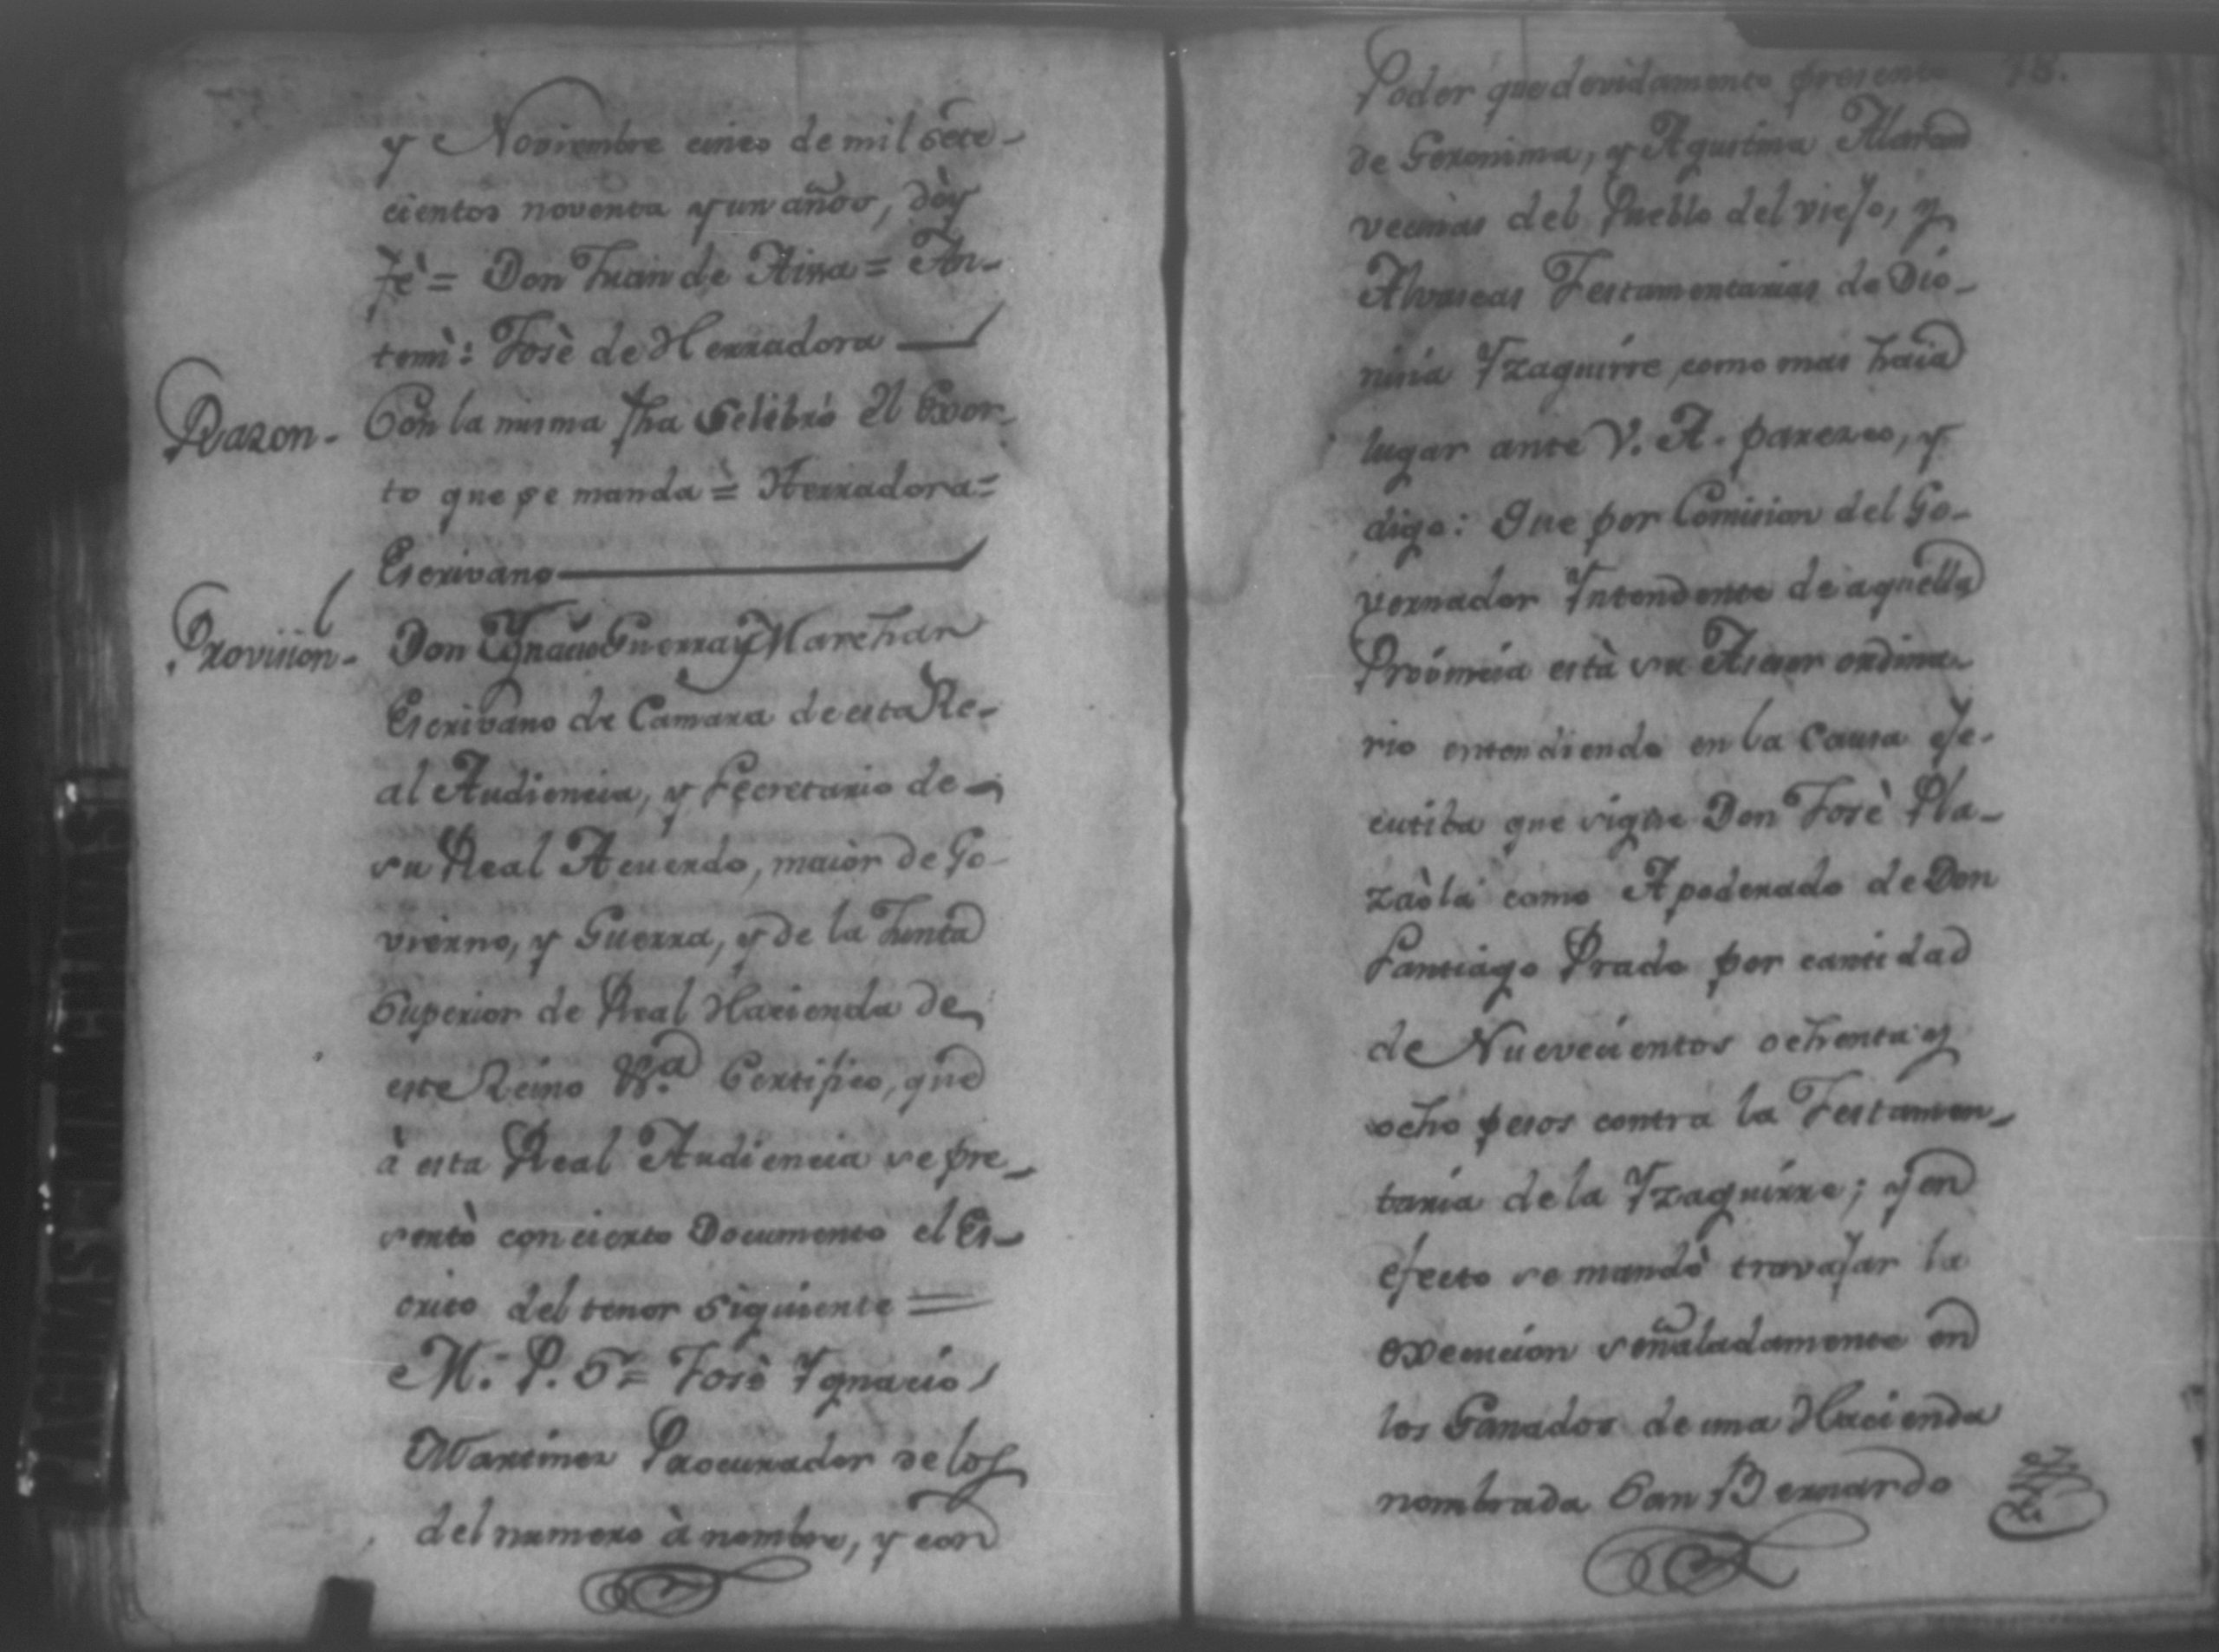 y Noviembre cinco de mil sete-
cientos noventa y un años, dòy
fè = Don Juan de Aissa = An-
temì: Josè de Herradora
Razon- Con la misma fha Selebró el Exor-
to que se manda = Herradora =
Escrivano
Provision- Don Ygnacio Guerra y Marchan
Escribano de Camara de esta Re-
al Audiencia, y Secretario de
su Real Acuerdo, maior de Go-
vierno, y Guerra, y de la Junta
Superior de Real Hacienda de
este Reino Vª Certifico, que
à esta Real Audiencia se pre-
sentò con cierto Documento el Es-
crito del tenor siguiente =
M. P. S = Josè Ygnacio
Martines Procurador de los
del numero à nombre, y con
Poder que devidamente presento
78.
de Geronima, y Agustina
vecinas del Pueblo del viejo, y
Alvaseas Testamentarias de Dio-
nicia Yzaguirre, como mas haia
lugar ante V. A. paresco, y
digo: Que por Comision del Go-
vernador Yntendente de aquella
Provincia està su Asesor ordina-
rio entendiendo en la Causa eje-
cutiba que sigue Don Josè Pla-
zaòla como Apoderado de Don
Santiago Prado por cantidad
de Nuevecientos ochenta y
ocho pesos contra la Testamen-
taria de la Yzaguirre; y en
efecto se mandò travajar la
execucion señaladamente en
los Ganados de una Hacienda
nombrada San Bernardo